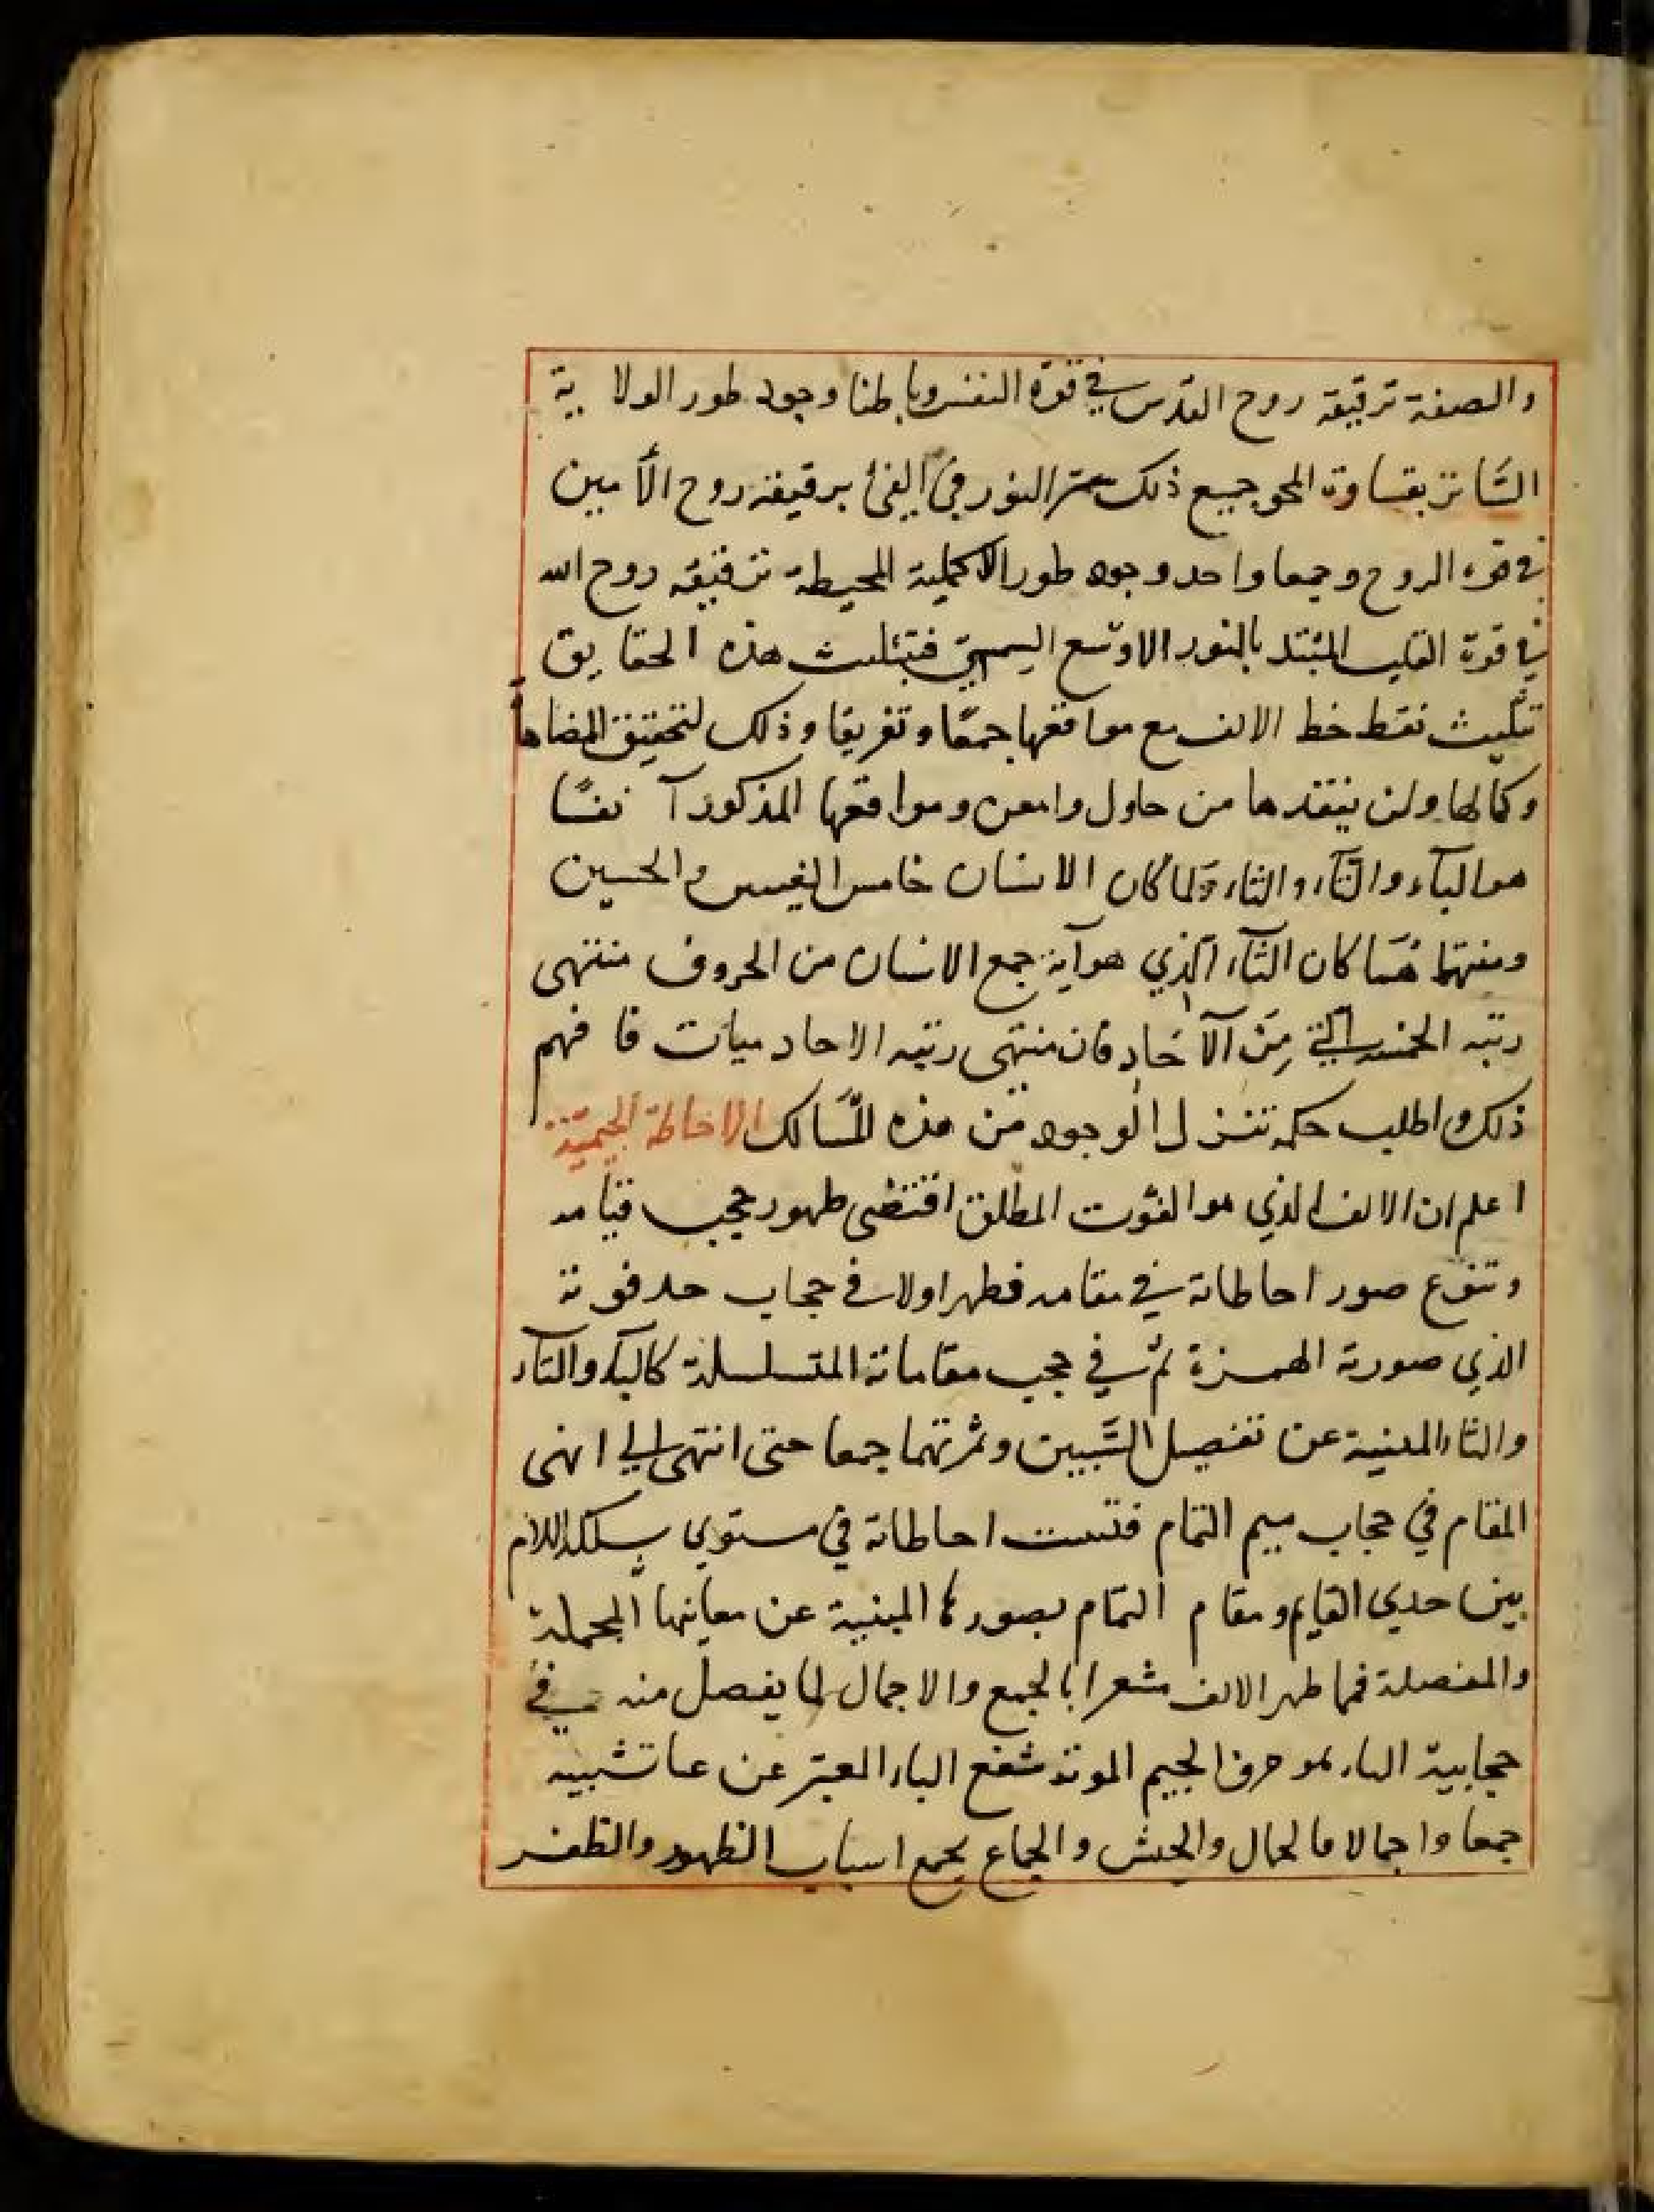 والصفة ترقيقة روح القدس في قوة النفس وباطنا وجود طور الولاية
الساتر بقساوة المحو جميع ذلك ستر النور في الفئ برقيقة روح الأمين
في قوة الروح وجمعا واحد وجود طور الاكملية المحيطة ترقيقة روح الله
في قوة القلب بالنور الاوسع فتثلث هذه الحقايق
تثليث نقط خط الالف مع مواقعها جمعا وتفريقا وذلك لتحقيق المضاهاة
وكمالها ولن ينقدها من حاول وامعن ومواقعها المذكورة نفسا
هو الباء والتاء والثاء ولما كان الانسان خامس والحسين
ومنتها كان الثاء الذي هو آية جمع الانسان من الحروف منتهى
رتبه الخمس التي من الآحاد فان منتهى رتبه الاحاد ميات فافهم
ذلك واطلب حكمة تنزل الوجود من هذه المسالك الاحاطة الجيمية
اعلم ان الالف الذي هو الفوت المطلق اقتضى ظهور حجب قيامه
وتنوع صور احاطاته في مقامه فظهر اولا في حجاب حد فوته
الذي صورته الهمزة ثم في حجب مقاماته المتسلسلة كالباء والتاء
والثاء المنبية عن تفصيل السببين وثمرتهما جمعا حتى انتهى الي انهى
المقام في حجاب ميم التمام فتمت احاطاته في مستوي سلك اللام
بين حدي القايم ومقام التمام بصورها المنبية عن معانيها المجملة
والمفصلة فما ظهر الالف مشعرا بالجمع والاجمال لما يفصل منه في
حجابية الباء هو حرف الجيم الموتر شفع الباء المعبر عن
جمعا واجمالا كالجمال والجيش والجماع بجمع اسباب الظهور والظفر